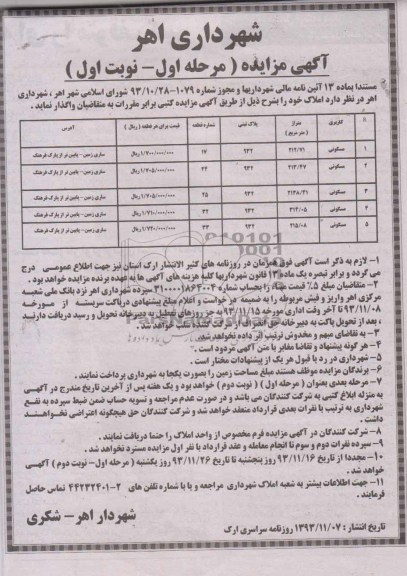 شهرداری اهر
آگهی مزایده ( مرحله اول - نوبت اول )
مستندا بماده ۱۳ آئین نامه مالی شهرداریها و مجوز شماره ۱۰۷۹-۹۳/۱۰/۲۸ شورای اسلامی شهر اهر ، شهرداری
اهر در نظر دارد املاک خود را بشرح ذیل از طریق آگهی مزایده کتبی برابر مقررات به متقاضیان واگذار نماید .
کاربری متراژ ( متر مربع ) پلاک ثبتی شماره قطعه قیمت برای هر قطعه ( ریال ) آدرس
۱ مسکونی ۲۱۲/۷۱ ۹۳۲ ۱۷ ۱/۷۰۰/۰۰۰/۰۰۰ ریال ساری زمین - پایین تر از پارک فرهنگ
۲ مسکونی ۲۱۳/۴۷ ۹۳۲ ۲۴ ۱/۷۰۵/۰۰۰/۰۰۰ ریال ساری زمین - پایین تر از پارک فرهنگ
۳ مسکونی ۹۳۲ ۲۵ ۱/۷۰۵/۰۰۰/۰۰۰ ریال ساری زمین - پایین تر از پارک فرهنگ
۴ مسکونی ۲۱۴/۰۵ ۹۳۲ ۳۲ ۱/۷۱۰/۰۰۰/۰۰۰ ریال ساری زمین - پایین تر از پارک فرهنگ
۵ مسکونی ۲۱۵/۰۸ ۹۳۲ ۳۳ ۱/۷۲۰/۰۰۰/۰۰۰ ریال ساری زمین - پایین تر از پارک فرهنگ
۱- لازم به ذکر است آگهی فوق همزمان در روزنامه های کثیر الانتشار ارک استان نیز جهت اطلاع عمومی درج
می گردد و برابر تبصره یک ماده ۱۳ قانون شهرداریها کلیه هزینه های آگهی ها به عهده برنده مزایده خواهد بود .
۲- متقاضیان مبلغ ۵٪ قیمت مبنا، را بحساب شماره ۳۱۰۰۰۰۱۸۶۳۰۰۴ سپرده شهرداری اهر نزد بانک ملی شعبه
مرکزی اهر واریز و فیش مربوطه را به ضمیمه درخواست و اعلام مبلغ پیشنهادی درپاکت سربسته از مورخه
۹۳/۱۱/۰۸ تا آخر وقت اداری مورخه ۹۳/۱۱/۱۵ به جز روزهای تعطیل به دبیرخانه تحویل و رسید دریافت دارند
، بعد از تحویل پاکت به دبیرخانه حق انصراف از شرکت کننده سلب خواهد شد .
۳- به تقاضای مبهم و مخدوش ترتیب اثر داده نخواهد شد .
۴- هر گونه پیشنهاد و تقاضا مغایر با متن آگهی مردود است .
۵- شهرداری در رد یا قبول هر یک از پیشنهادات مختار است .
۶- برندگان مزایده موظف هستند مبلغ مساحت زمین را بصورت یکجا به شهرداری پرداخت نمایند .
۷- مرحله بعدی بعنوان ( مرحله اول ) ( نوبت دوم ) خواهد بود و یک هفته پس از آخرین تاریخ مندرج در آگهی
به منزله ابلاغ کتبی به شرکت کنندگان می باشد و در صورت عدم مراجعه و تسویه حساب ضمن ضبط سپرده به نفع
شهرداری به ترتیب با نفرات بعدی قرارداد منعقد خواهد شد و شرکت کنندگان حق هیچگونه اعتراضی نخواهند
داشت .
۸- شرکت کنندگان در آگهی مزایده فرم مخصوص از واحد املاک را حتما دریافت نمایند .
۹- سپرده نفرات دوم و سوم تا انجام معامله و عقد قرارداد با نفر اول مزایده مسترد نخواهد شد .
۱۰- مجددا از تاریخ ۹۳/۱۱/۱۶ روز پنجشنبه تا تاریخ ۹۳/۱۱/۲۶ روز یکشنبه ( مرحله اول - نوبت دوم ) آگهی
خواهد شد .
۱۱- جهت اطلاعات بیشتر به شعبه املاک شهرداری مراجعه و یا با شماره تلفن های ۲-۴۴۲۳۲۴۰۱ تماس حاصل
فرمایند .
شهردار اهر - شکری
تاریخ انتشار : ۱۳۹۳/۱۱/۰۷ روزنامه سراسری ارک